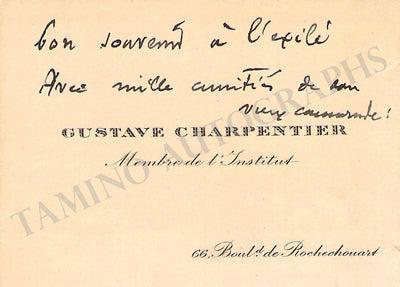 bon souvenir à l'exilé
Avec mille amitiés de son
vieux camarade!
GUSTAVE CHARPENTIER
Membre de l'Institut
66, Boul.d de Rochechouart
TAMINO AUTOGRAPHS